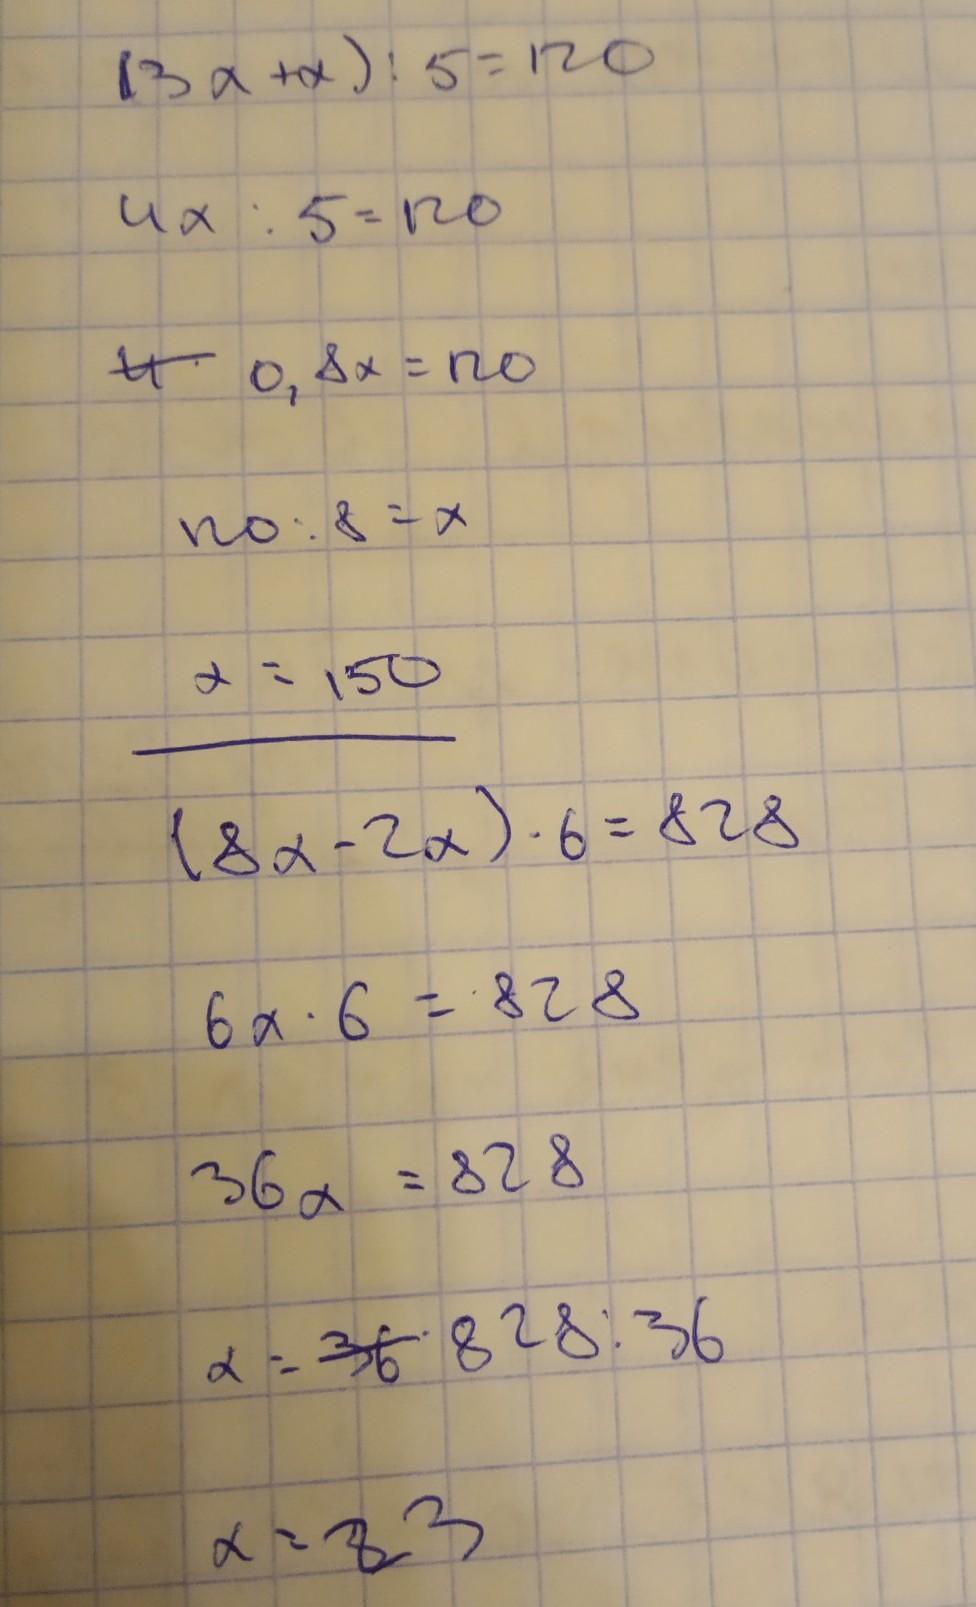 (3x+x):5=120
4x:5=120
0,8x=120
120:8=x
x=150
(8x-2x)·6=828
6x·6=828
36x=828
x=36 828:36
x=23